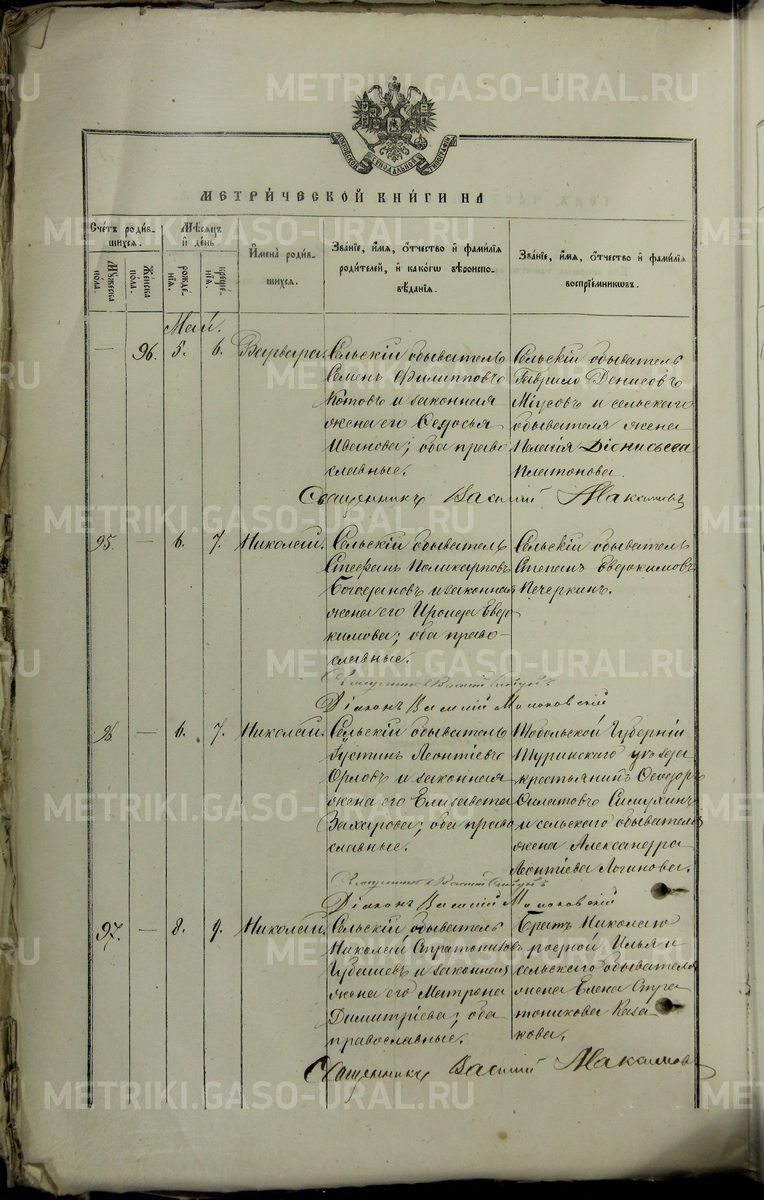 METRIKI.GASO-URAL.RU
МЕТРИ́ЧЕСКОЙ КНИ́ГИ НА
Сче́тъ роди́в-
шихся.
Му́жеска по́ла.
Же́нска по́ла.
Мѣ́сяцъ и҆ де́нь
рожде́нїѧ.
креще́нїѧ.
И҆мена̀ роди́в-
шихся.
Зва́нїе, и҆́мѧ, ѻ҆́тчество и҆ фами́лїѧ
роди́телей, и҆ како́гѡ вѣроиспо-
вѣ́данїѧ.
Зва́нїе, и҆́мѧ, ѻ҆́тчество и҆ фами́лїѧ
воспрїе́мниковъ.
Май.
— 96. 5. 6. Варвара.
Сельскій обыватель
Семенъ Филипповъ
Котовъ и законная
жена его Ѳедосья
Иванова; оба право
славные.
Сельскій обыватель
Гаврило Денисовъ
Міусовъ и сельскаго
обывателя жена
Пелагія Діонисьева
Платонова.
Священникъ Василій Макимовъ
95. — 6. 7. Николай.
Сельскій обыватель
Стефанъ Поликарповъ
Богдановъ и законная
жена его Ираида Евдо
кимова; оба право-
славные.
Сельскій обыватель
Степанъ Евдокимовъ
Печеркинъ.
Священникъ Василій
Діаконъ Василій
96 — 6. 7. Николай.
Сельскій обыватель
Іустинъ Леонтіевъ
Орловъ и законная
жена его Елизавета
Захарова; оба право
славные.
Тобольской Губерніи
Туринскаго уѣзда
крестьянинъ Ѳеодоръ
Филатовъ
и сельскаго обывателя
жена Александра
Леонтіева Логинова.
Священникъ Василій
Діаконъ Василій
97. — 8. 9. Николай.
Сельскій обыватель
Николай Стратониковъ
Чубашевъ и законная
жена его Матрона
Димитріева; оба
православные.
Братъ Николаю
родной Илья и
сельскаго обывателя
жена Елена Стра
тоникова Каза
кова.
Священникъ Василій Макимовъ